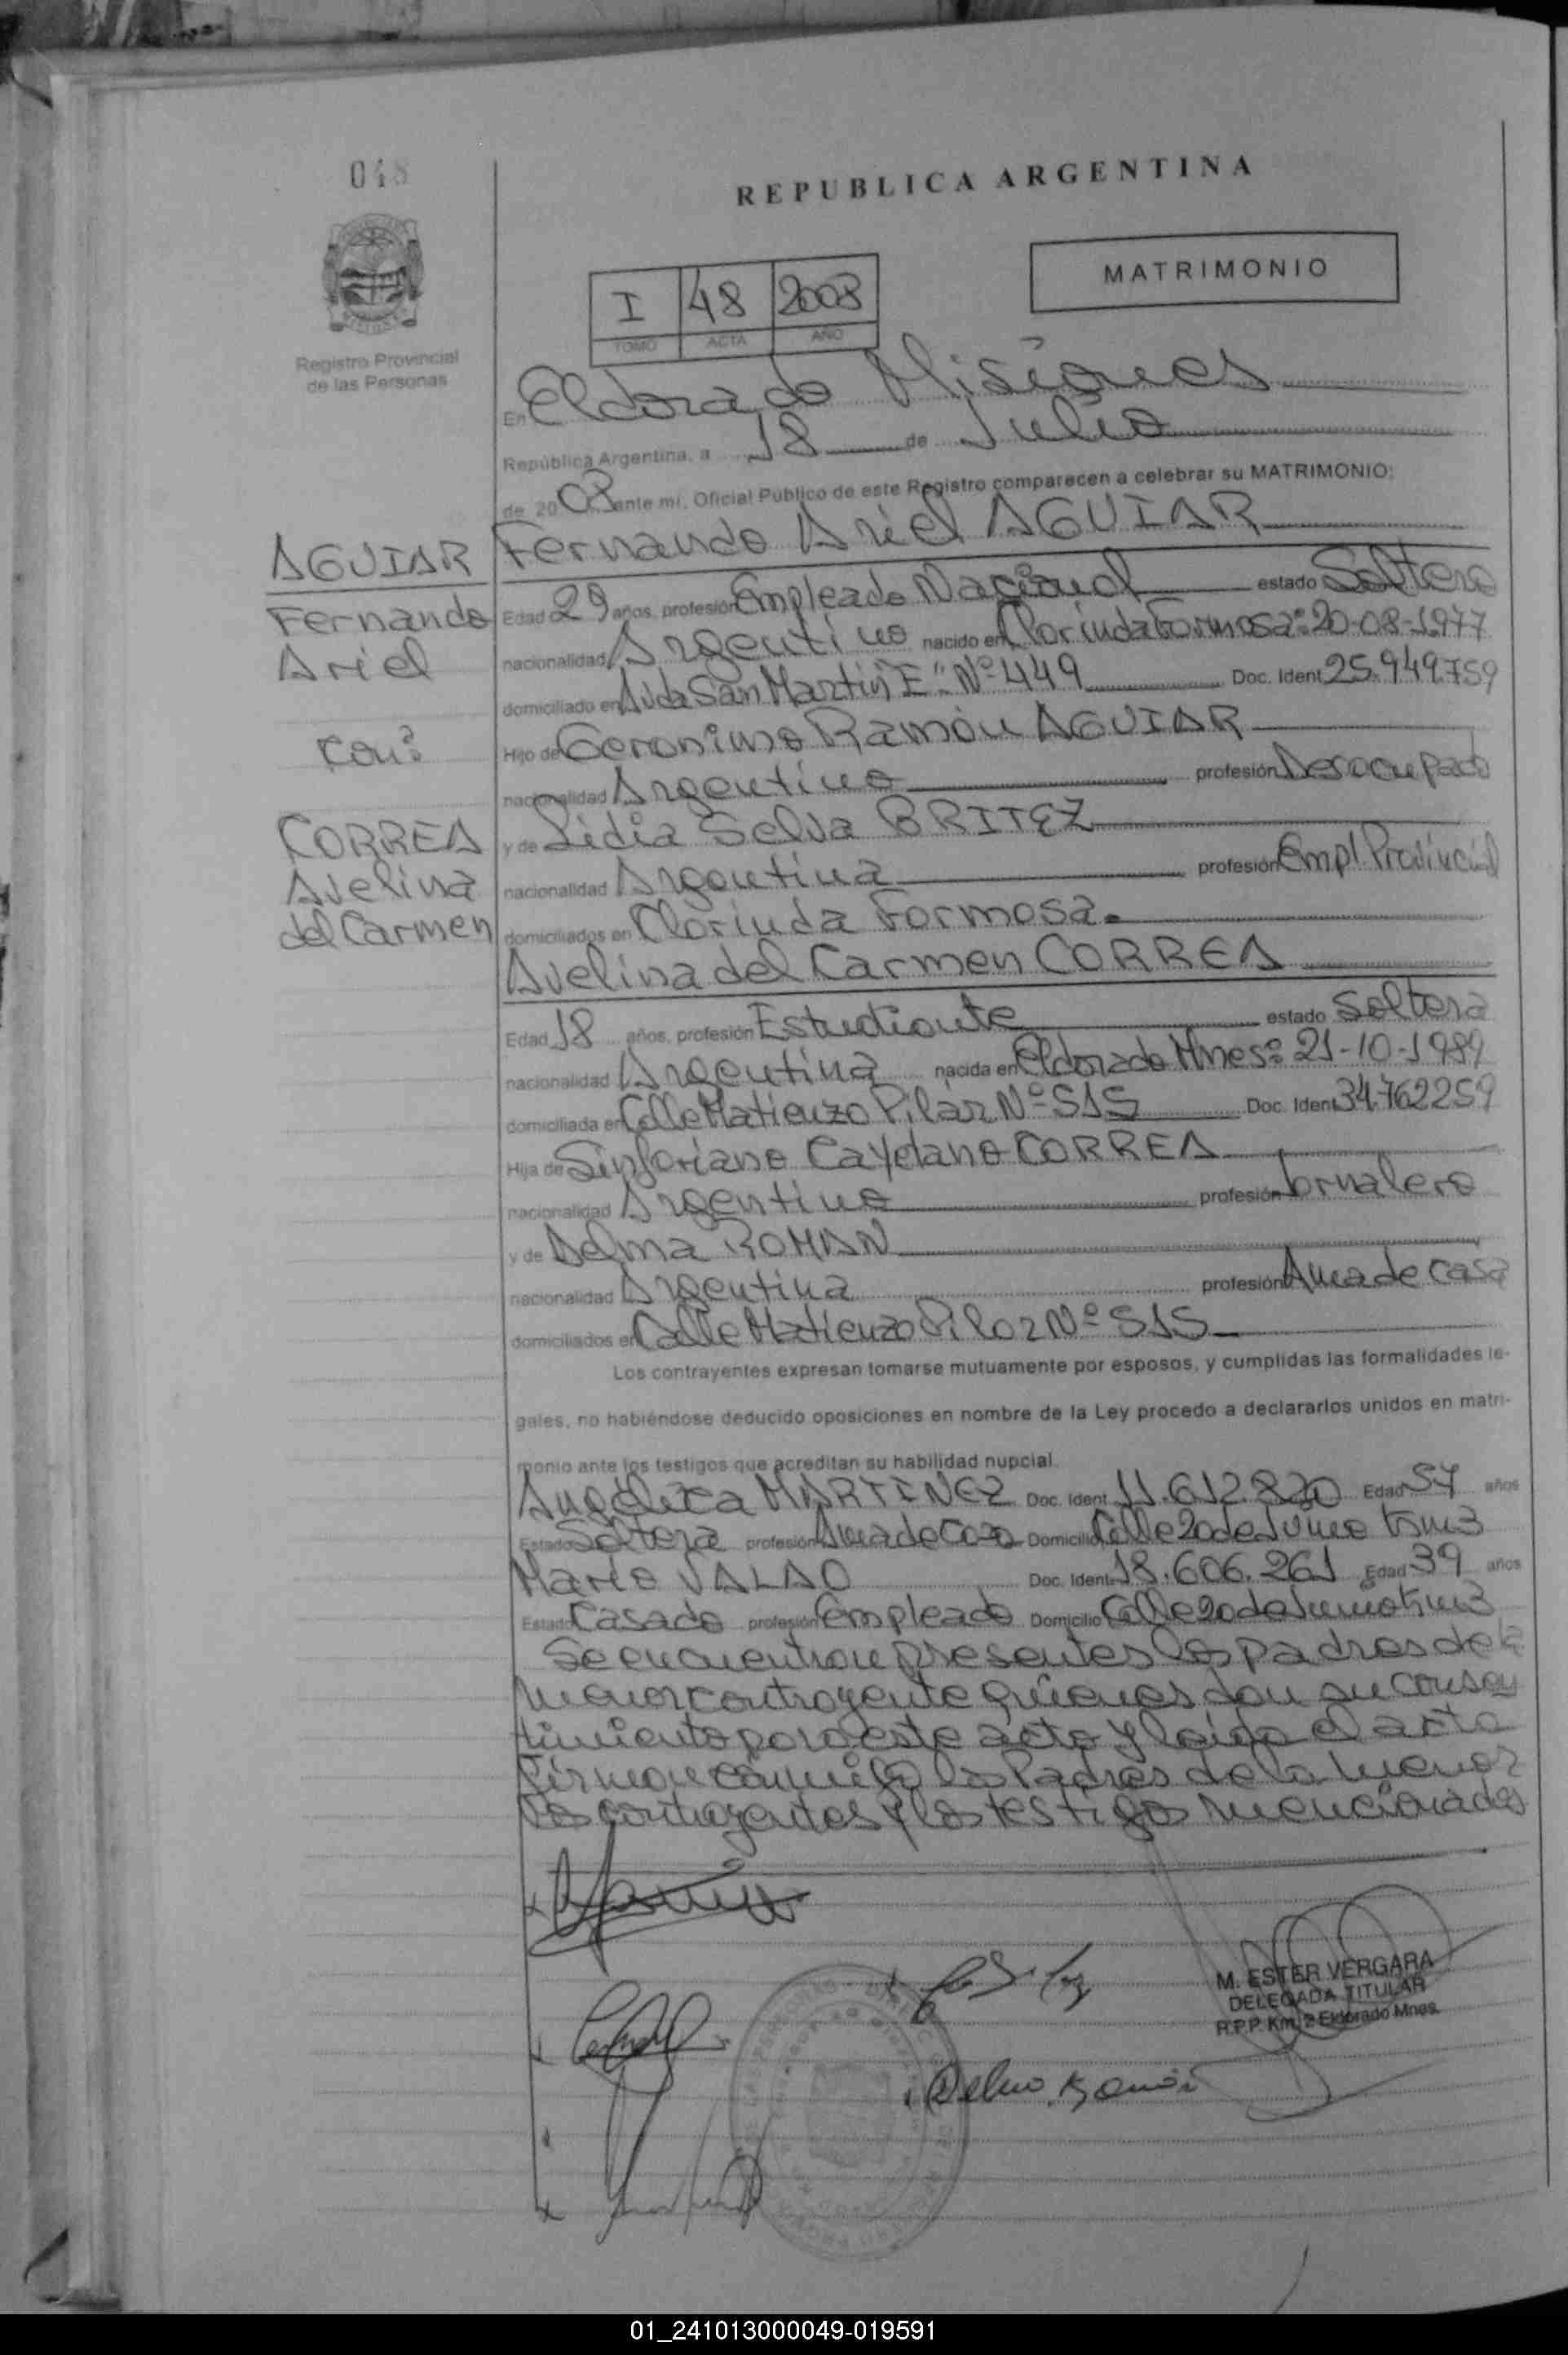 048
REPUBLICA ARGENTINA
MATRIMONIO
I 48 2008
TOMO ACTA AÑO
Registro Provincial
de las Personas
En Eldorado Misiones
República Argentina, a 18 de Julio
de 2008 ante mí, Oficial Público de este Registro comparecen a celebrar su MATRIMONIO:
AGUIAR
Fernando
Ariel
con:
CORREA
Avelina
del Carmen
Fernando Ariel AGUIAR
Edad 29 años, profesión Empleado Nacional estado Soltero
nacionalidad Argentino nacido en Clorinda Formosa: 20-08-1977
domiciliado en Avda San Martín "E" Nº 449 Doc. Ident 25.949.759
Hijo de Geronimo Ramón AGUIAR
nacionalidad Argentino profesión Desocupado
y de Lidia Selva BRITEZ
nacionalidad Argentina profesión Empl Provincial
domiciliados en Clorinda Formosa.
Avelina del Carmen CORREA
Edad 18 años, profesión Estudiante estado Soltera
nacionalidad Argentina nacida en Eldorado Mnes: 21-10-1989
domiciliada en Calle Matienzo Pilar Nº 515 Doc. Ident 34.762259
Hija de Sinforiano Cayetano CORREA
nacionalidad Argentino profesión Jornalero
y de Delma ROMAN
nacionalidad Argentina profesión Ama de casa
domiciliados en Calle Matienzo Pilar Nº 515
Los contrayentes expresan tomarse mutuamente por esposos, y cumplidas las formalidades le-
gales, no habiéndose deducido oposiciones en nombre de la Ley procedo a declararlos unidos en matri-
monio ante los testigos que acreditan su habilidad nupcial.
Angélica MARTINEZ Doc. Ident 11.612.820 Edad 54 años
Estado Soltera profesión Ama de Casa Domicilio Calle 20 de Junio km3
Mario VALAO Doc. Ident 18.606.261 Edad 39 años
Estado Casado profesión Empleado Domicilio Calle 20 de Junio km3
Se encuentran presentes los padres de la
menor contrayente quienes dan su consen
timiento para este acto y leida el acta
firman conmigo los Padres de la menor
los contrayentes y los testigos mencionados
M. ESTER VERGARA
DELEGADA TITULAR
R.P.P. Km. 2 Eldorado Mnes.
Delma Román
01_241013000049-019591